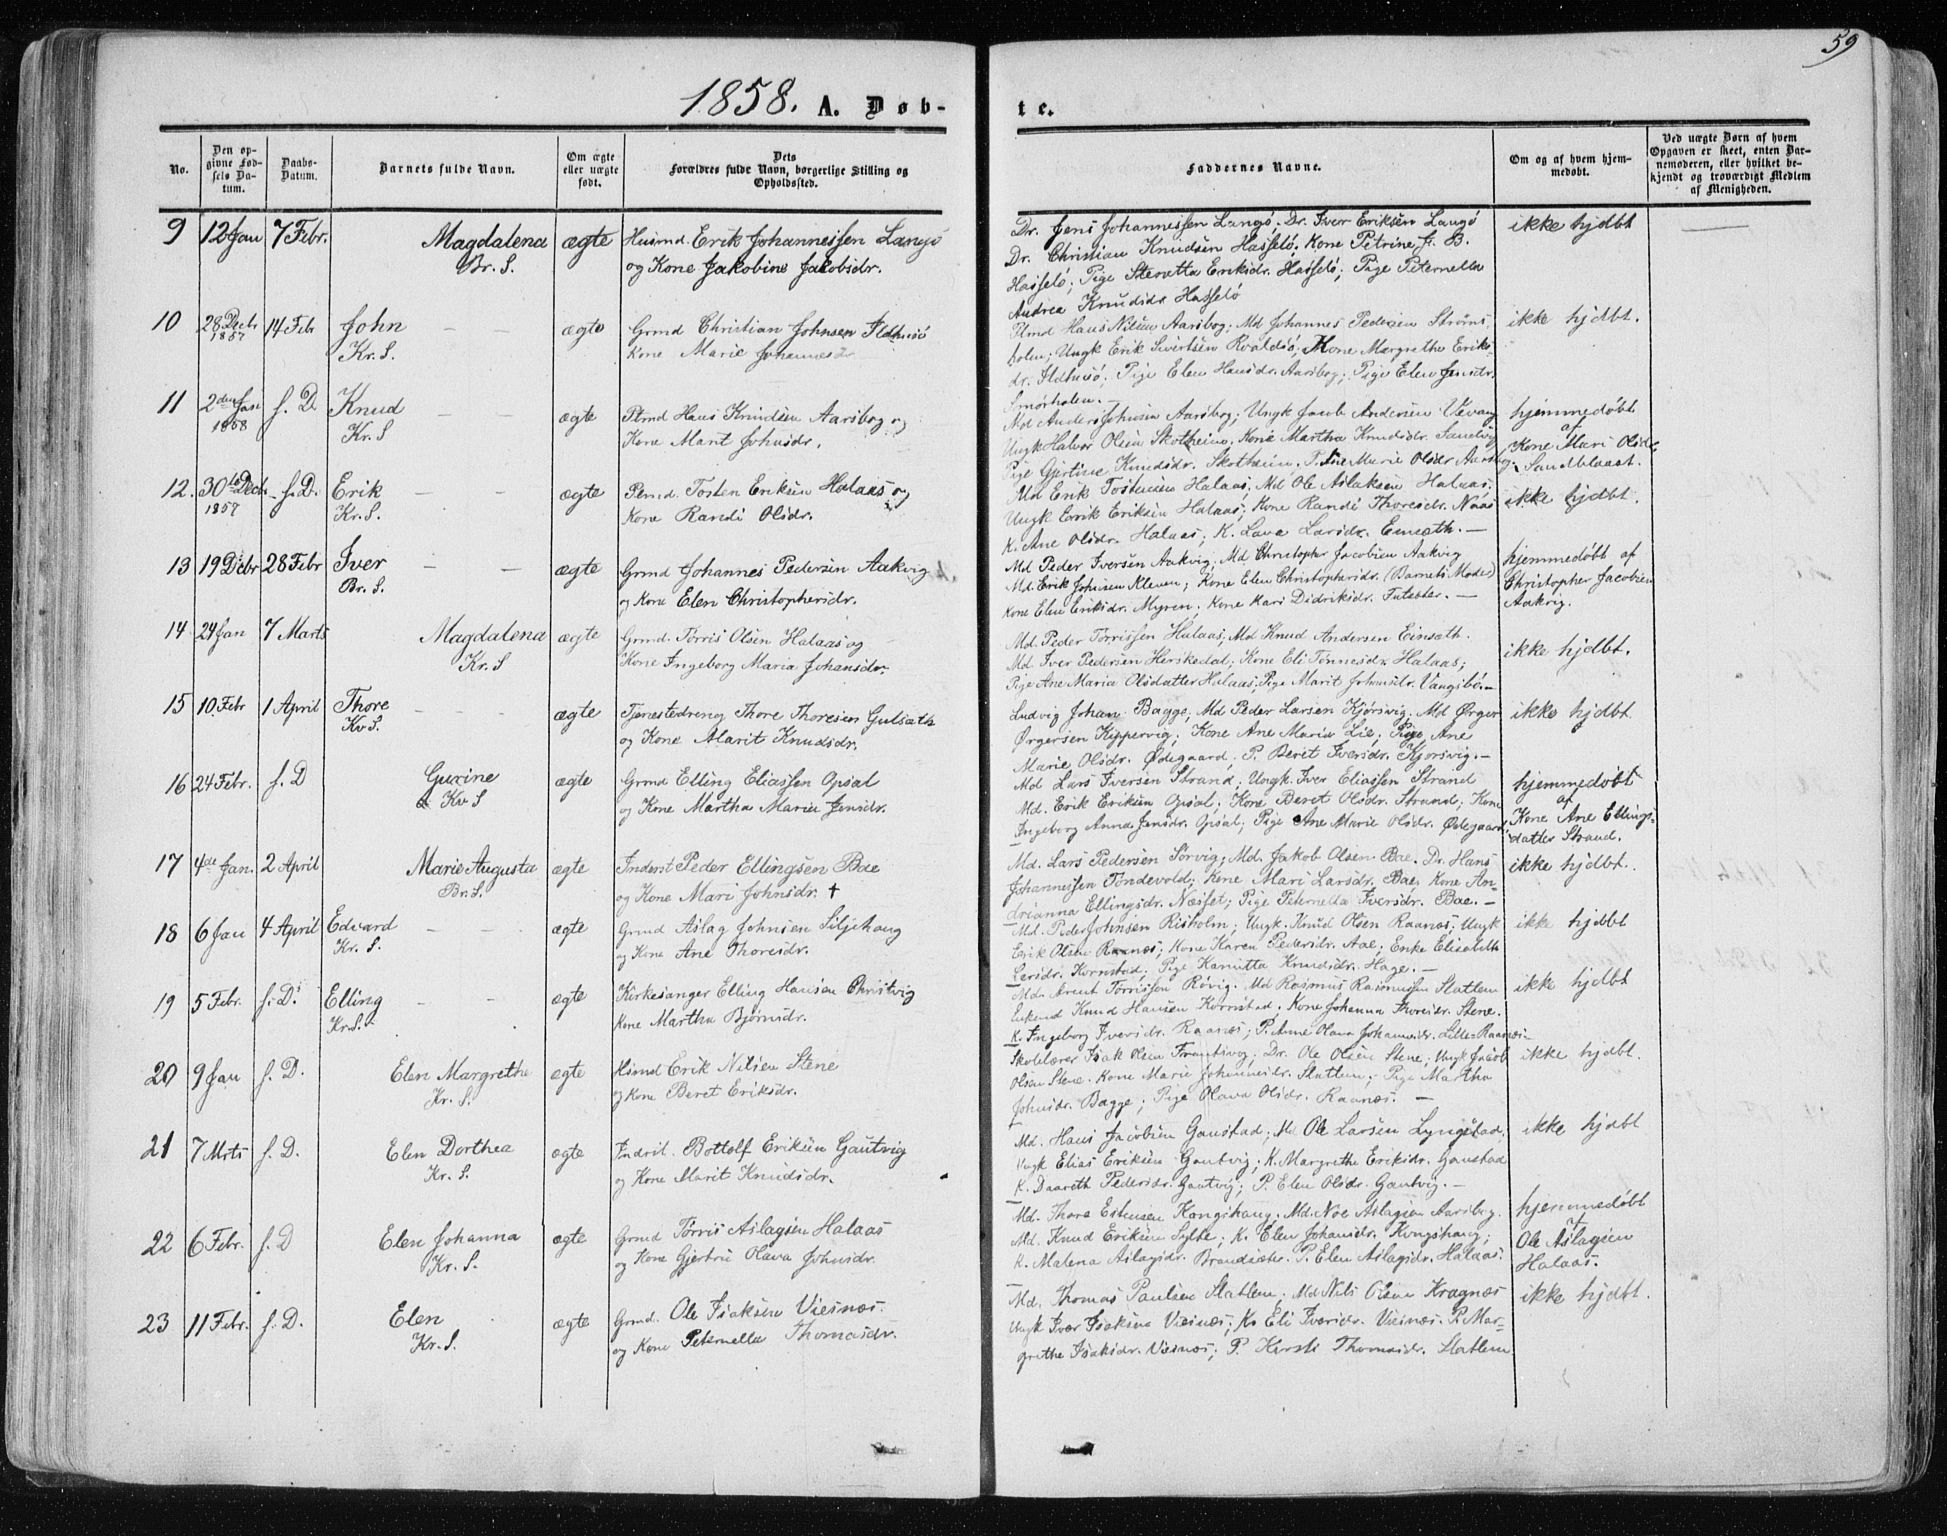 59
1858. A. Døb-
te.
No.
Den op-
givne Fød-
sels Da-
tum.
Daabs-
Datum.
Barnets fulde Navn.
Om ægte
eller uægte
født.
Dets
Forældres fulde Navn, borgerlige Stilling og
Opholdssted.
Faddernes Navne.
Om og af hvem hjem-
medøbt.
Ved uægte Børn af hvem
Opgaven er skeet, enten Bar-
nemoderen, eller hvilket be-
kjendt og troværdigt Medlem
af Menigheden.
9 12 Jan 7 Febr. Magdalena ægte Husmd. Erik Johannessen Langø
Br. S. og Kone Jakobine Jakobsdr.
Dr. Jens Johannessen Langø. Dr. Iver Eriksen Langø
Dr. Christian Knudsen Hasselø. Kone Petrine J. B.
Hasselø; Pige Eriksdr. Hasselø; Pige Peternella
Andrea Knudsdr Hasselø
ikke hjdbt
10 28 Decbr 14 Febr John - - ægte Grmd Christian Johnsen Ildhusø
1857 Kr. S. Kone Marie Johannesdr
Hans Nilsen Aarsbog; Md Johannes Pedersen Strøms
holm; Ungk Erik Sivertsen; Kone Margrethe Eriks-
dr. Ildhusø; Pige Elen Hansdr. Aarsbog; Pige Elen Jensdr.
Smørholen. -
ikke hjdbt.
11 2den Jan s. D. Knud - - ægte Hans Knudsen Aarsbog og
1858 Kr. S Kone Marit Johnsdr.
Md Anders Johnsen Aarsbog; Ungk Jacob Andersen Vevang
Ungk Halvor Olsen Skotheim. Kone Martha Knudsdr. Sandvig
Pige Gjertine Knudsdr. Skotheim. P. Ane Marie Olsdr Aarsbog.
hjemmedøbt
af
Kone Mari Olsdr
Sandblaast.
12. 30te Decb. s. D. Erik - - ægte Tosten Eriksen Halaas og
1857 Kr. S. Kone Randi Olsdr.
Md Erik Tostensen Halaas. Md Ole Aslaksen Halaas.
Ungk Erik Eriksen Halaas; Kone Randi Thoresdr. Naas
K. Ane Olsdr. Halaas; K. Lava Larsdr. Einsæth. -
ikke hjdbt.
13 19 Decbr 28 Febr Iver - - ægte Grmd Johannes Pedersen Aakvig
Br. S. og Kone Elen Christophersdr.
Md Peder Iversen Aakvig; Md Christopher Jacobsen Aakvig
Md. Erik Johnsen Kleven; Kone Elen Christophersdr. (Barnets Moder)
Kone Elen Eriksdr. Myren. Kone Kari Didriksdr. Futsæter. -
hjemmedøbt af
Christopher Jacobsen
Aakvig.
14 24 Jan 7 Marts Magdalena ægte Grmd. Tørris Olsen Halaas og
Kr. S Kone Ingeborg Maria Johansdr.
Md. Peder Tørrissen Halaas; Md Knud Andersen Einsæth.
Md Iver Pedersen Herskedal; Kone Eli Tønnesdr. Halaas;
Pige Ane Maria Olsdatter Halaas; Pige Marit Johnsdr. Vangsbø. -
ikke hjdbt.
15 10 Febr 1 April Thore - - - ægte Tjenestedreng Thore Thoresen Gulsæth
Kv S. og Kone Marit Knudsdr.
Ludvig Johan Bagge; Md Peder Larsen Kjørsvig. Md Ørger
Ørgersen Kippervig; Kone Ane Maria Lie; Pige Ane
Marie Olsdr. Ødegaard; P. Beret Iversdr. Kjørsvig. -
ikke hjdbt
16 24 Febr. s. D Gurine ægte Grmd Elling Eliassen Opsal
Kv S og Kone Martha Maria Jensdr.
Md Lars Iversen Strand; Ungk. Iver Eliassen Strand
Md. Erik Eriksen Opsal; Kone Beret Olsdr. Strand; Kone
Ingeborg Anna Jensdr. Opsal; Pige Ane Marie Olsdr. Ødegaard.
hjemmedøbt
af
Kone Ane Ellings-
datter Strand.
17 4de Jan. 2 April Marie Augusta ægte Inderst Peder Ellingsen Bae
Br. S. og Kone Mari Johnsdr. +
Md. Lars Pedersen Sørvig; Md. Jakob Olsen Bae. Dr. Hans
Johannessen Tøndevold; Kone Mari Larsdr. Bae; Kone An-
drianna Ellingsdr. Næsset; Pige Peternella Iversdr. Bae. -
ikke hjdbt.
18 6 Jan 4 April Edvard - - ægte Grmd Aslag Johnsen Siljehaug
Kr. S. og Kone Ane Thoresdr.
Md. Peder Johnsen Risholm; Ungk. Knud Olsen Raanæs; Ungk
Erik Olsen Raanæs; Kone Karen Pedersdr. Aae; Enke Elisabeth
Larsdr. Kornstad; Pige Kanutta Knudsdr. Hage. -
ikke hjdbt
19 5 Febr. s. D. Elling - - ægte Kirkesanger Elling Hansen Christvig
Kr. S. Kone Martha Bjørnsdr.
Md. Arent Tørrissøn Røvig. Md Rasmus Rasmussen Slatlem
Enkemd Knud Hansen Kornstad. Kone Johanna Thoresdr. Stene.
K. Ingeborg Iversdr. Raanæs; P. Anne Olava Johannesdr. Lille-Raanæs.
ikke hjdbt
20 9 Jan s. D. Elen Margrethe ægte Husmd Erik Nilsen Stene
Kr. S. og Kone Beret Eriksdr.
Skolelærer Isak Olsen; Dr. Ole Olsen Stene; Ungk Jacob
Olsen Stene. Kone Marie Johannesdr. Slatlem; Pige Martha
Johnsdr. Bagge; Pige Olava Olsdr. Raanæs. -
ikke hjdbt.
21 7 Mrts s. D. Elen Dorthea ægte Indril. Bottolf Eriksen Gautvig
Kr. S. og Kone Marit Knudsdr.
Md. Hans Jacobsen Gaustad; Md. Ole Larsen Lyngstad.
Ungk Elias Eriksen Gautvig; K. Margrethe Eriksdr. Gaustad
K. Daareth Pedersdr. Gautvig; P. Elen Olsdr. Gautvig. -
ikke hjdbt
22 6 Febr. s. D Elen Johanna ægte Grmd Tørris Aslagsen Halaas
Kr. S. og Kone Gjertru Olava Johnsdr.
Md. Thore Estensen Kongshaug. Md. Noe Aslagsen Aarsbog.
Md. Knud Eriksen Sylte; K. Elen Johansdr. Kongshaug;
K. Malena Aslagsdr. Brandsæter. P. Elen Aslagsdr. Halaas.
hjemmedøbt
af
Ole Aslagsen
Halaas.
23 11 Febr. s. D. Elen ægte Grmd. Ole Isaksen Viesnæs.
Kr. S. og Kone Peternella Thomasdr.
Md. Thomas Paulsen Slatlem; Md Nils Olsen Kragnæs
Ungk Iver Isaksen Viesnæs; K. Eli Iversdr. Viesnæs. P. Mar-
grethe Isaksdr. Viesnæs; P. Kirsti Thomasdr. Slatlem
ikke hjdbt.